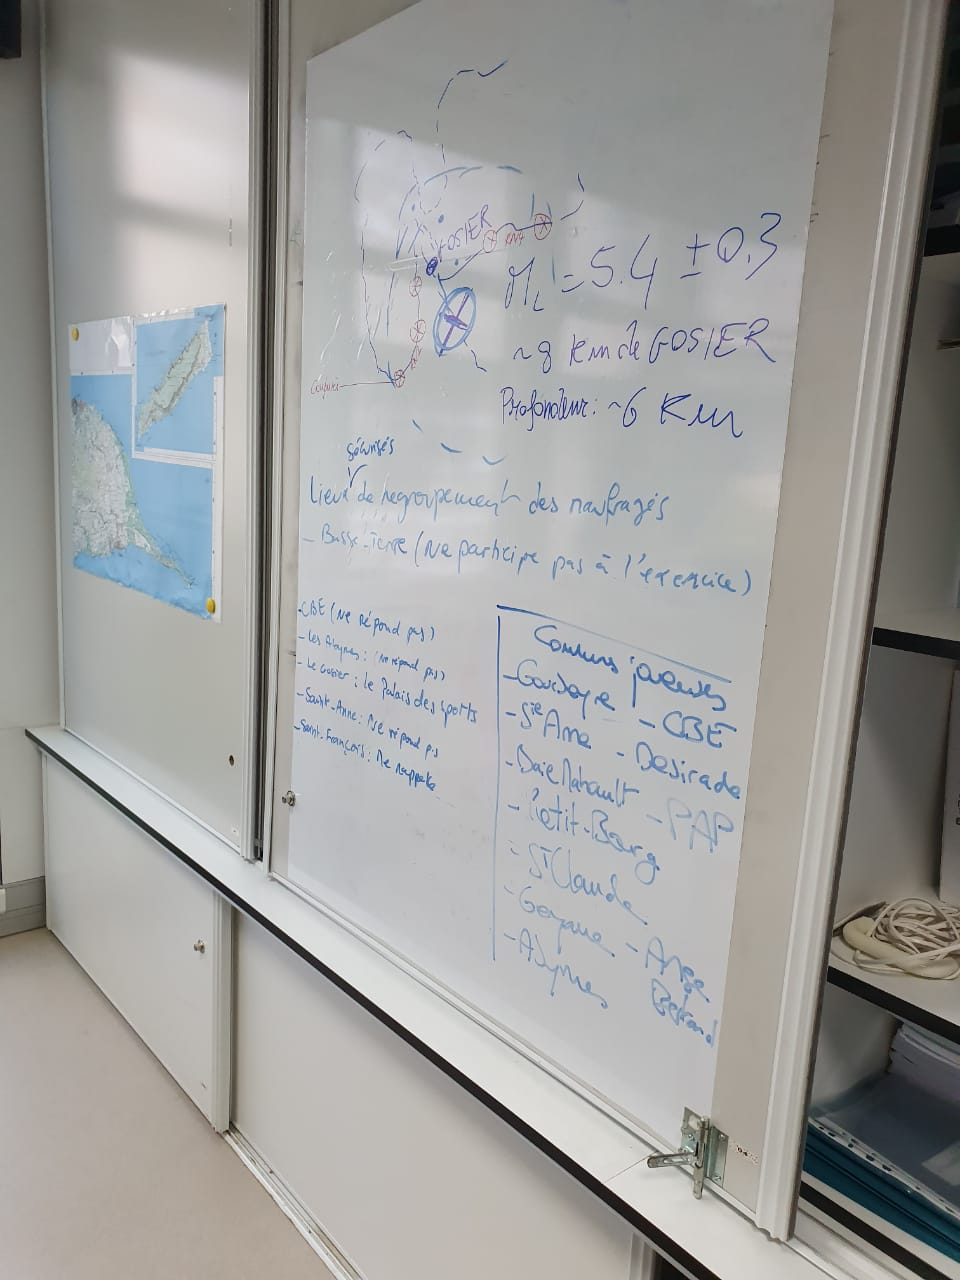 GOSIER
RN1
M_L = 5.4 ± 0.3
~ 8 Km de GOSIER
Profondeur : ~ 6 Km
sécurisés
Lieux de regroupement des naufragés
- Basse-Terre (Ne participe pas à l'exercice)
- CBE (Ne répond pas)
- Les Abymes : (Ne répond pas)
- Le Gosier : Le Palais des sports
- Saint-Anne : Ne répond pas
- Saint-François : Me rappelle
joueuses
- Gourbeyre - CBE
- Ste Anne - Desirade
- Baie Mahault - PAP
- Petit-Bourg
- St Claude
- Goyave - Anse Bertrand
- Abymes